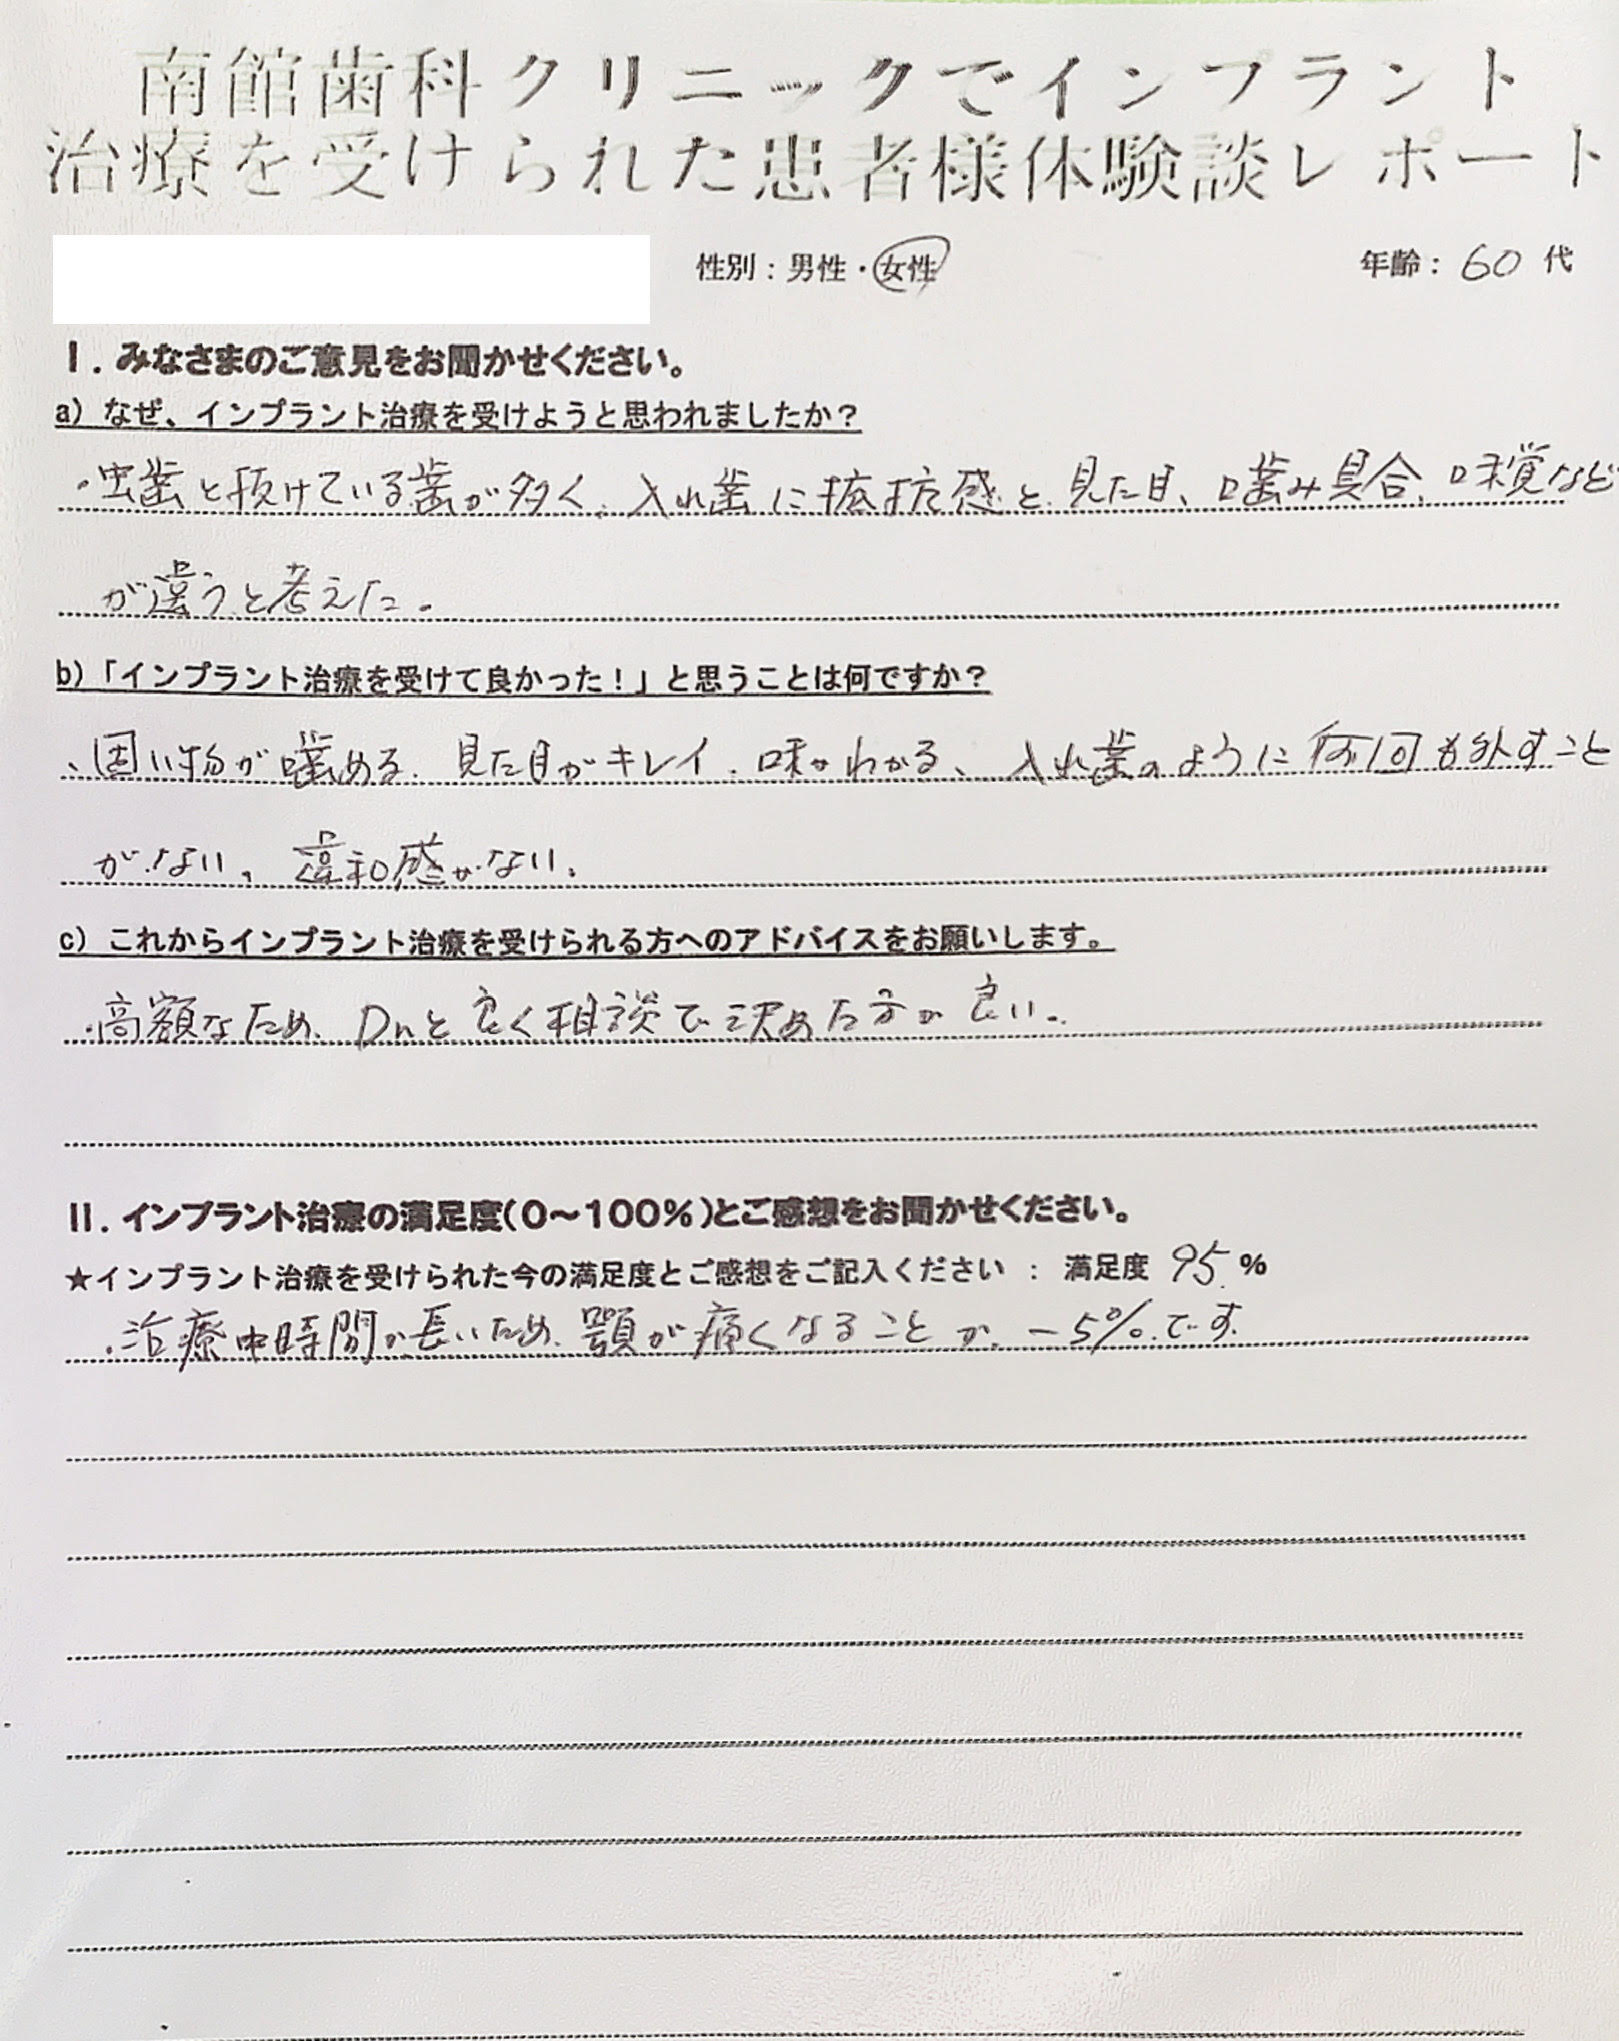 南館歯科クリニックでインプラント
治療を受けられた患者様体験談レポート
性別：男性・女性 年齢：60代
I．みなさまのご意見をお聞かせください。
a）なぜ、インプラント治療を受けようと思われましたか？
・虫歯と抜けている歯が多く、入れ歯に抵抗感と見た目、噛み具合、味覚など
が違うと考えた。
b）「インプラント治療を受けて良かった！」と思うことは何ですか？
、固い物が噛める、見た目がキレイ、味がわかる、入れ歯のように何回も外すこと
がない、違和感がない。
c）これからインプラント治療を受けられる方へのアドバイスをお願いします。
・高額なため、Drと良く相談で決めた方が良い。
II．インプラント治療の満足度(0〜100％)とご感想をお聞かせください。
★インプラント治療を受けられた今の満足度とご感想をご記入ください ： 満足度 95 %
・治療中時間が長いため、顎が痛くなることが、-5%です。